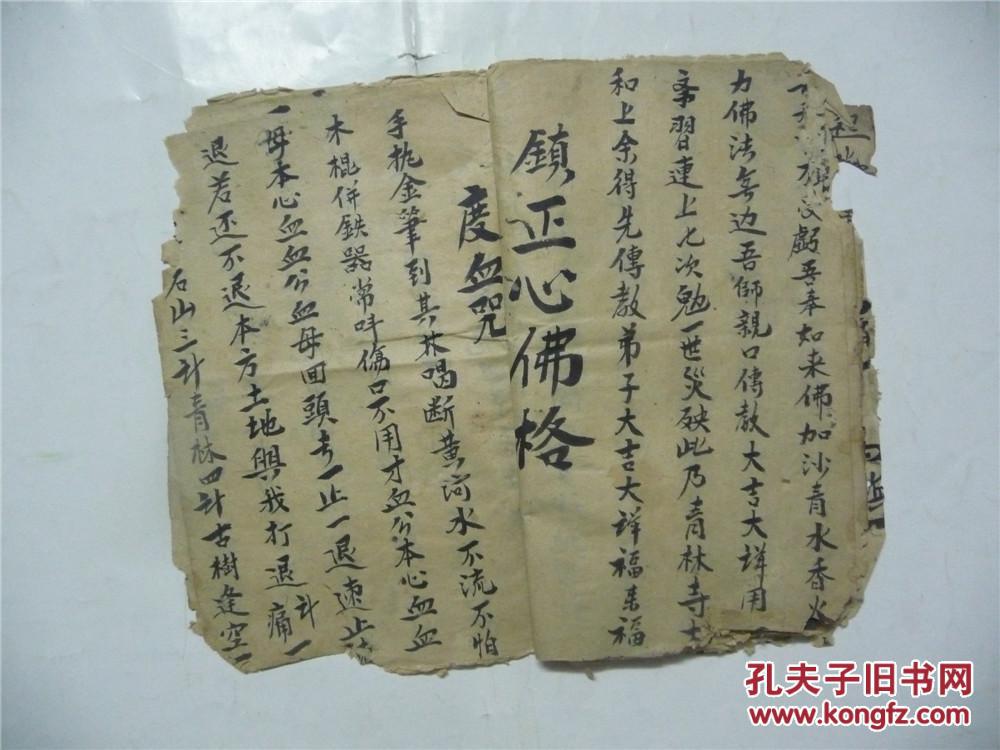 吾奉如来佛加沙青水香火
力佛法无边吾師親口傳教大吉大詳用一
斋習連上七次勉一世災殃此乃青林寺
和上余得先傳教弟子大吉大詳福来福
鎮正心佛格
度血咒
手执金筆到其林喝断黄河水不流不怕
木棍併鉄器常吽傷口不用才血公本心血血
母本心血血公血母回頭去一止一退速止
退若还不退本方土地與我打退痛一
石山三計青林四計古樹逢空一
孔夫子旧书网
www.kongfz.com